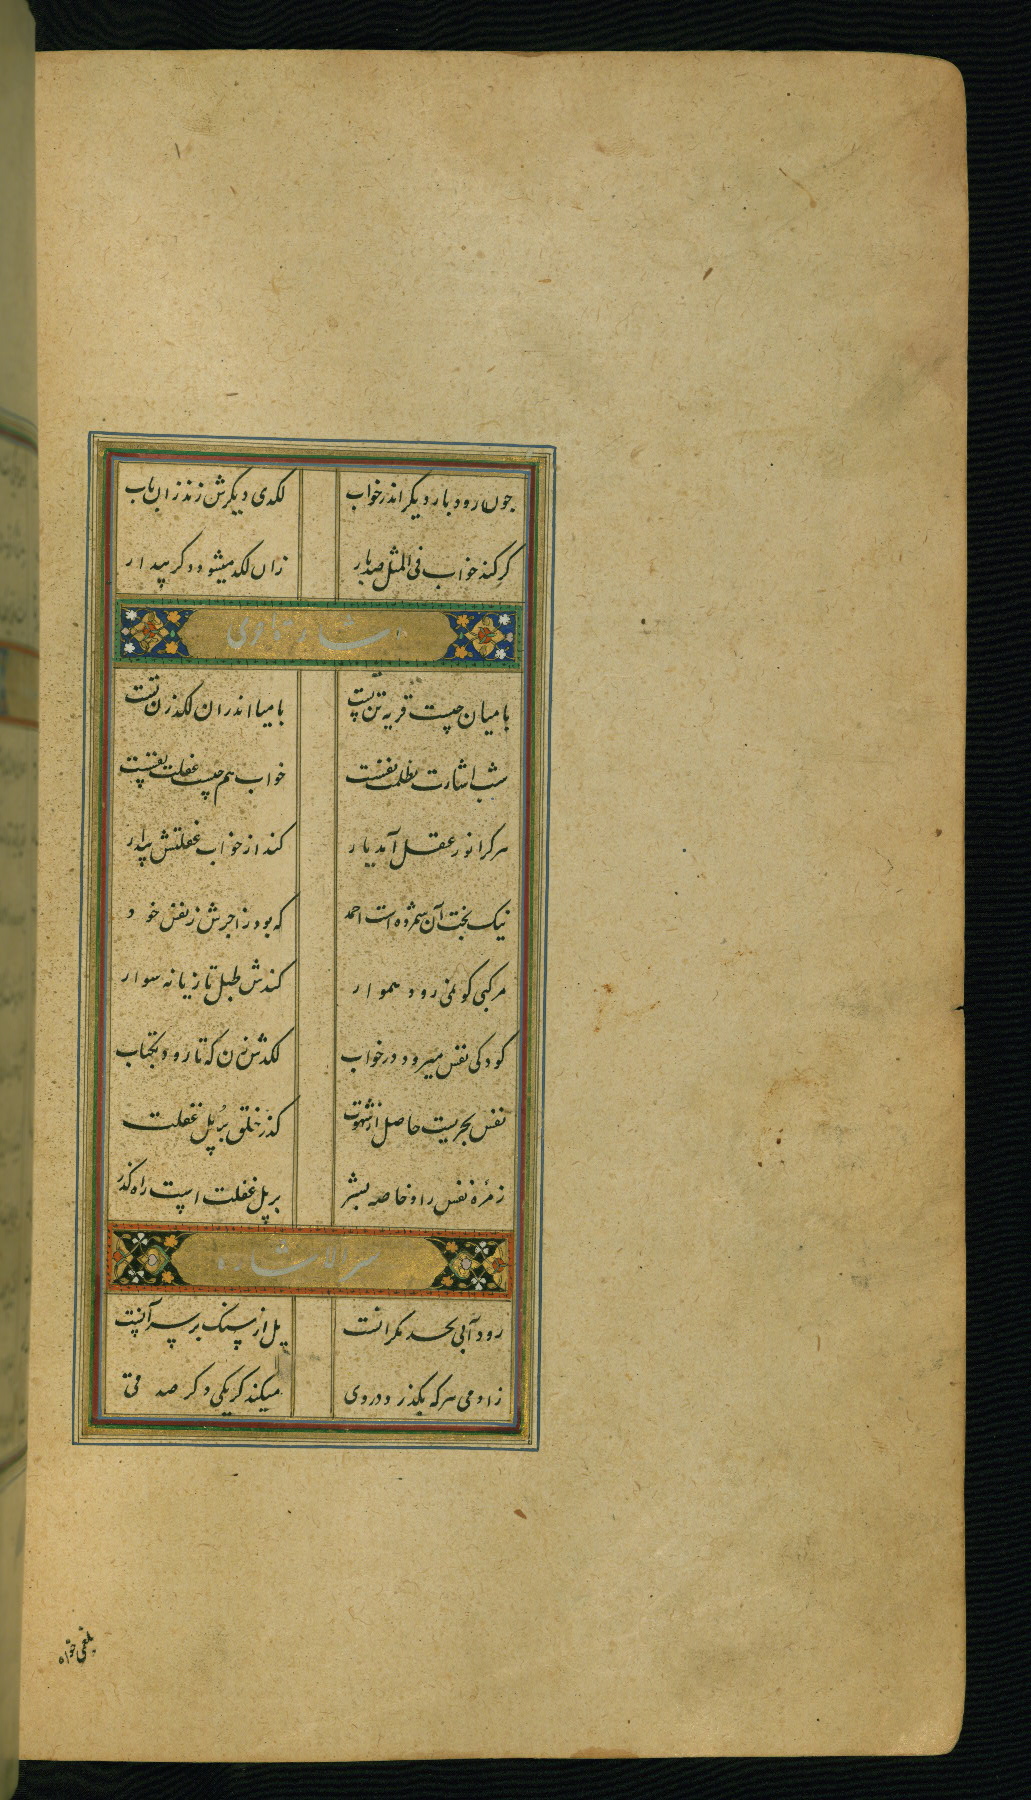 چون رود بار دیگر اندر خواب لکدی دیگرش زند زان باب
گر کند خواب فی المثل صد بار زان لکد میشود دگر بیدار
بامیان چیست قریه تن پست بامیا اندران لکدزن تست
شب اشارت بظلمت نفست خواب هم چیست غفلت نفست
هرکرا نور عقل آمد یار کند از خواب غفلتش بیدار
نیک بخت آن شمرده است احمد که بود زاجرش ز نفس خود
مرکبی کو نمی رود هموار کندش طبل تازیانه سوار
کودکی نفس میرود در خواب لکدش زن که تا رود بشتاب
نفس بحریست حاصل از شهوت گذر خلق بر پل غفلت
زمره نفس را و خاصه بشر بر پل غفلت است راه گذر
سر الاشاره
رود آبی بحد مکرانست پل از سنگ بر سر آنست
زادمی هرکه بگذرد در وی میکند گر یکی و گر صد قی